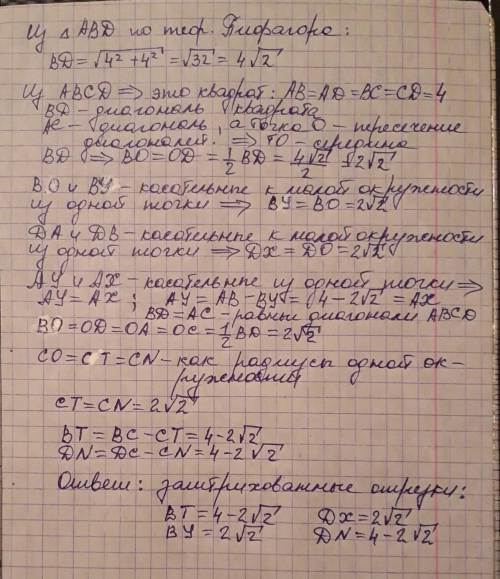 Из △ ABD по теор. Пифагора:
BD = √4² + 4² = √32 = 4√2
Из ABCD ⟹ это квадрат: AB=AD=BC=CD=4
BD – диагональ квадрата
AC – диагональ, а точка O – пересечение
диагоналей. ⟹ TO – середина
BD ⟹ BO=OD= 1/2 BD = 4√2/2 = 2√2
BO и BY – касательные к малой окружности
из одной точки ⟹ BY = BO = 2√2
DA и DB – касательные к малой окружности
из одной точки ⟹ DX = DO = 2√2
AY и AX – касательные из одной точки ⟹
AY = AX ; AY = AB – BY = 4 – 2√2 = AX
BD = AC – равные диагонали ABCD
BO = OD = OA = OC = 1/2 BD = 2√2
CO = CT = CN – как радиусы одной ок-
ружности
CT = CN = 2√2
BT = BC – CT = 4 – 2√2
DN = DC – CN = 4 – 2√2
Ответ: заштрихованные отрезки:
BT = 4 – 2√2 DX = 2√2
BY = 2√2 DN = 4 – 2√2